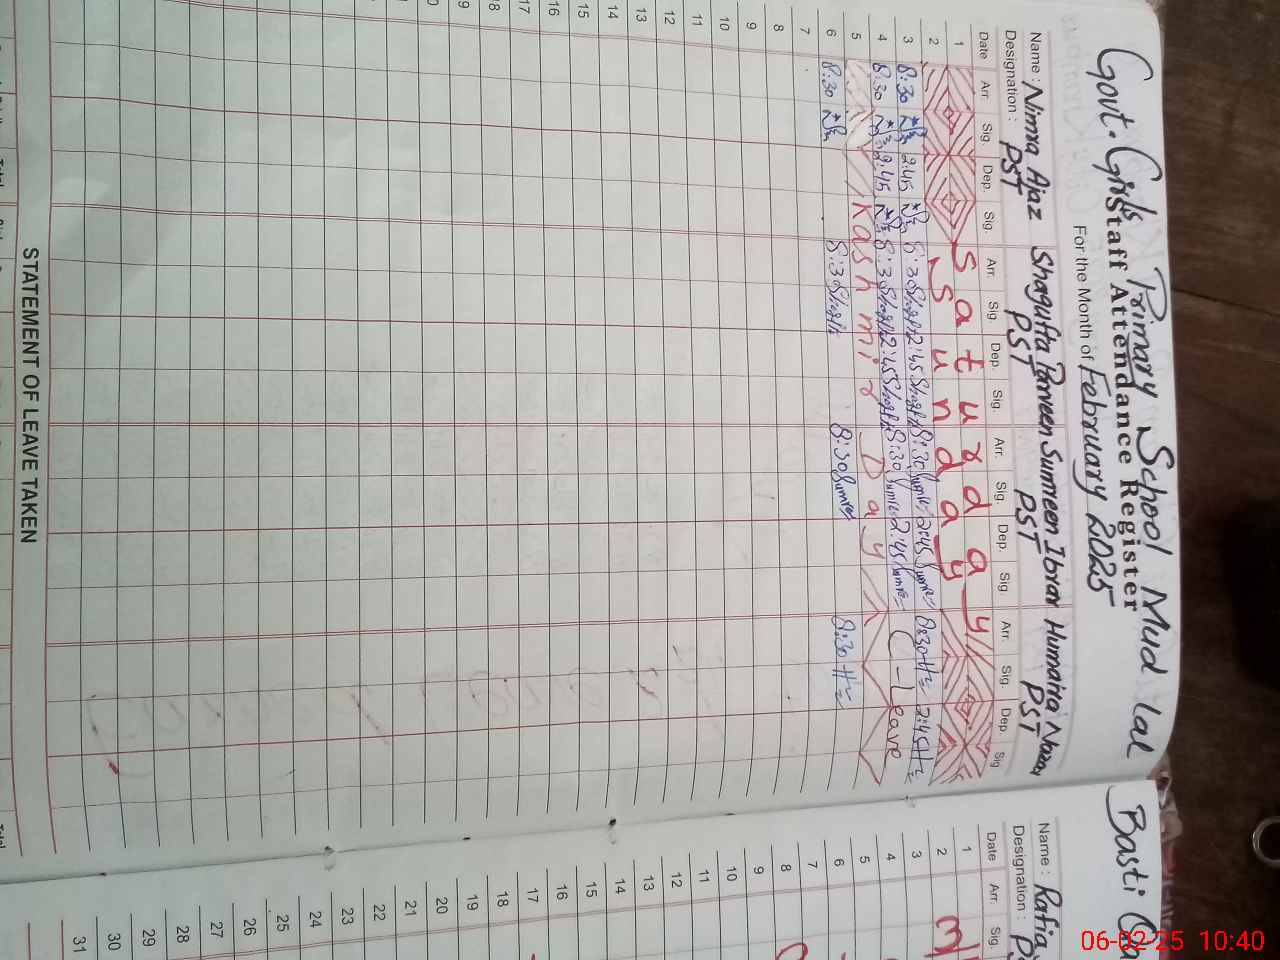 Govt. Girls Primary School Mud lal
Staff Attendance Register
For the Month of February 2025
Name : Nimra Ajaz Shagufta Parveen Sumreen Ibrar Humaira Nazar
Designation : PST PST PST PST
Date Arr. Sig. Dep. Sig. Arr. Sig. Dep. Sig. Arr. Sig. Dep. Sig. Arr. Sig. Dep. Sig
1 Saturday
2 Sunday
3 8:30 2:45 8:30 2:45 8:30 2:45 8:30 2:45
4 8:30 2:45 8:30 2:45 8:30 2:45 (-Leave
5 Kashmir Day
6 8:30 8:30 8:30 8:30
7
8
9
10
11
12
13
14
15
16
17
18
19
STATEMENT OF LEAVE TAKEN
Basti
Name : Rafia
Designation :
Date Arr. Sig.
1
2
3
4
5
6
7
8
9
10
11
12
13
14
15
16
17
18
19
20
21
22
23
24
25
26
27
28
29
30
31
06-02-25 10:40